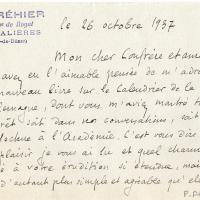 BRÉHIER
rue de Royat
MALIÈRES
-de-Dôme)
le 26 octobre 1937
Mon cher Confrère et ami
avez eu l'aimable pensée de m'adr
nouveau livre sur le Calendrier de la
dont vous m'aviez montré
soit dans nos conversations, soit
à l'Académie. C'est vous dire
plaisir je vous ai lu et quel charme
à votre érudition si étendue, mais
d'autant plus simple et agréable qu'elle